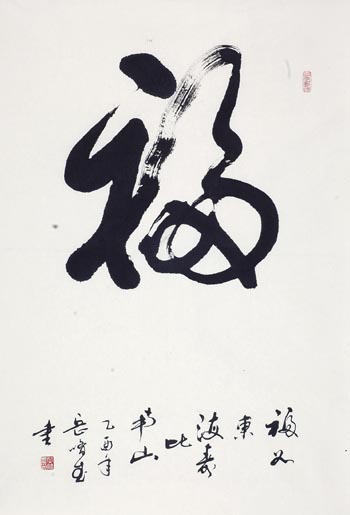 福
福如
東
海壽
比
南山
乙酉年
岳
書